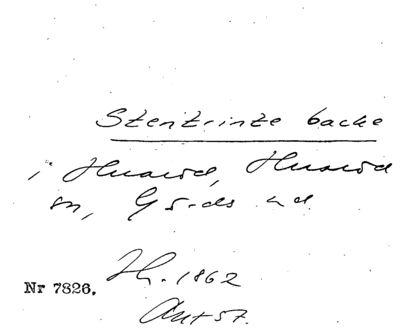 Stentrinte backe
i Huaröd, Huaröd
sn, Gärds hd.
Nr 7826. H. 1862
Ant 57.